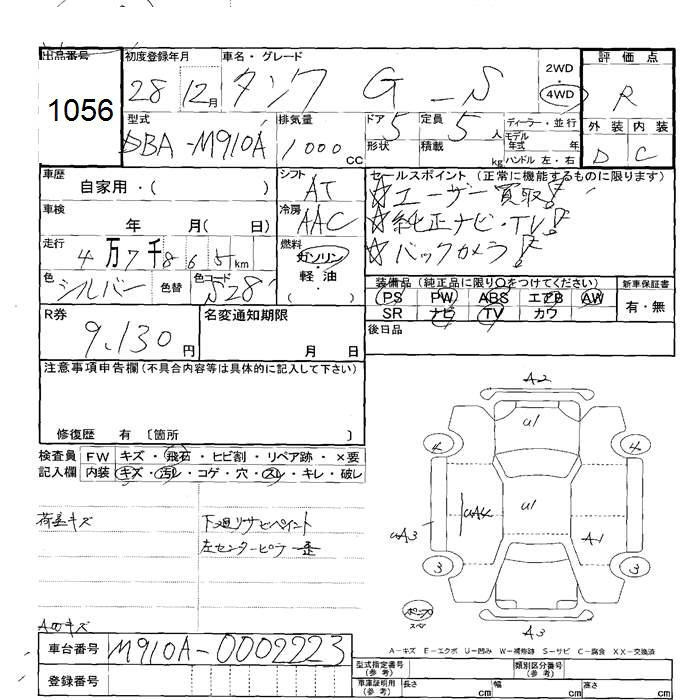 出品番号 初度登録年月 車名・グレード 2WD 評価点
1056 28 12月 タンク G-S 4WD R
型式 排気量 ドア 定員 ディーラー・並行 外装 内装
DBA-M910A 1000cc 5 5人 モデル年式 年 D C
形状 積載 kg ハンドル 左・右
車歴 シフト セールスポイント (正常に機能するものに限ります)
自家用・( ) AT ☆ユーザー買取!
車検 冷房 ☆純正ナビ・TV!
年 月( 日) AAC ☆バックカメラ!
走行 燃料
4万7千865km ガソリン・軽油
色 色替 色コード ( )
シルバー S28 装備品 (純正品に限り○をつけてください) 新車保証書
PS PW ABS エアB AW 有・無
SR ナビ TV カワ
R券 名変通知期限 後日品
9,130円 月 日
注意事項申告欄(不具合内容等は具体的に記入して下さい)
修復歴 有 〔箇所 〕
検査員 FW キズ・飛石・ヒビ割・リペア跡・×要
記入欄 内装 キズ・汚れ・コゲ・穴・スレ・キレ・破レ
荷室キズ 下廻りサビペイント
左センターピラー歪
A2
U1
4 4
UA3 UA4 U1 A1
3 3
A3
A-キズ E-エクボ U-凹み W-補修跡 S-サビ C-腐食 XX-交換済
車台番号 M910A-0002223
登録番号
型式指定番号(参考) 類別区分番号(参考)
車庫証明用(参考) 長さ cm 幅 cm 高さ cm